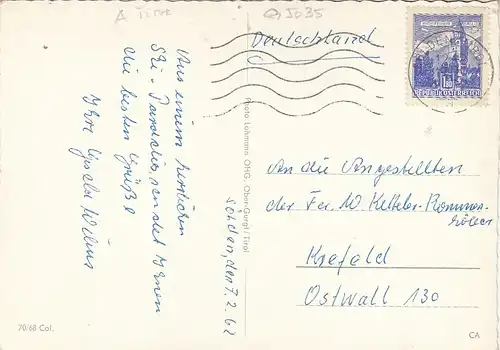 A Tirol
Q 5035
Deutschland
REPUBLIK ÖSTERREICH
Sölden, den 7. 2. 62
Aus einem herrlichen
Ski-Paradies, sendet Ihnen
die besten Grüße
Ihre
Photo Lohmann OHG. Ober-Gurgl/Tirol
An die Angestellten
der Fa. W. Ketteler-Rommers-
Krefeld
Ostwall 130
70/68 Col.
CA